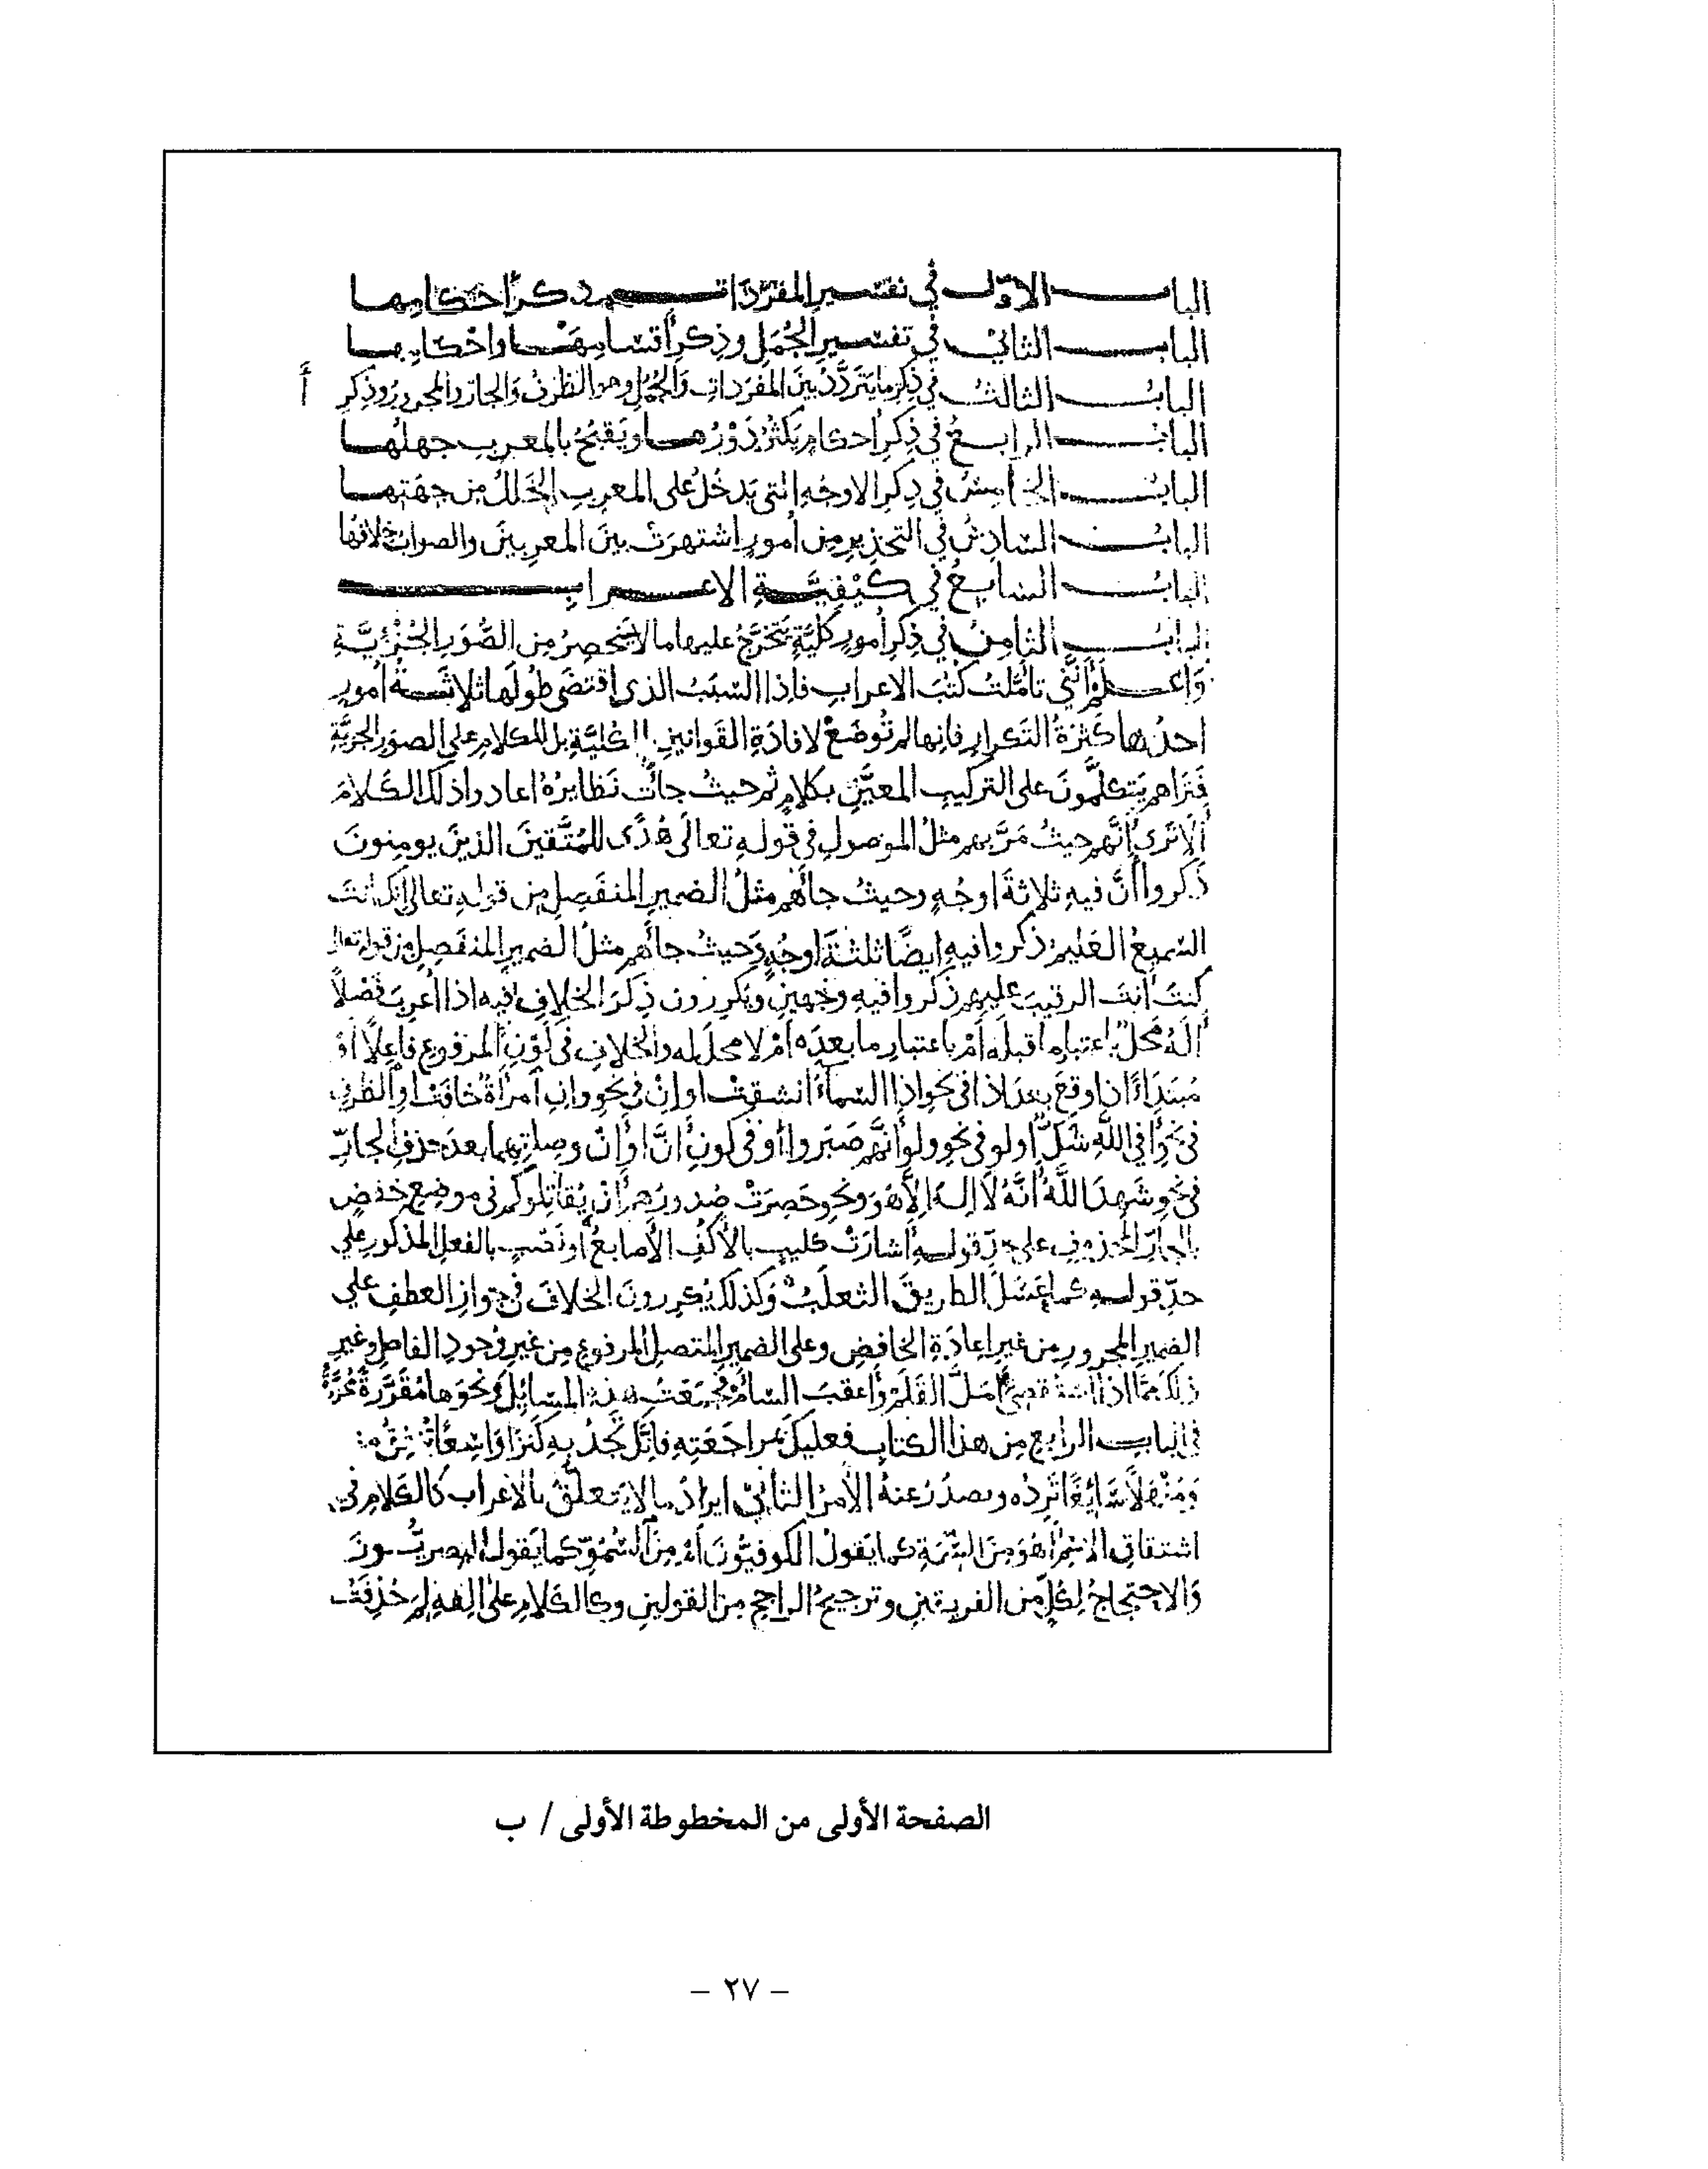 الباب الاول في تفسير المفردات وذكر احكامها
الباب الثاني في تفسير الجمل وذكر أقسامها واحكامها
الباب الثالث في ذكر ما يتردد بين المفردات والجمل وهو الظرف والجار والمجرور وذكر أ
الباب الرابع في ذكر احكام يكثر دورها ويقبح بالمعرب جهلها
الباب الخامس في ذكر الاوجه التي يدخل على المعرب الخلل من جهتها
الباب السادس في التحذير من أمور اشتهرت بين المعربين والصواب خلافها
الباب السابع في كيفية الاعراب
الباب الثامن في ذكر أمور كلية يتخرج عليها ما لا ينحصر من الصور الجزئية
واعلم أنني تأملت كتب الاعراب فاذا السبب الذي اقتضى طولها ثلاثة أمور
احدها كثرة التكرار فانها لم توضع لافادة القوانين الكلية بل للكلام على الصور الجزئية
فتراهم يتكلمون على التركيب المعين بكلام ثم حيث جأت نظايره اعادوا ذلك الكلام
ألا ترى أنهم حيث مر بهم مثل الموصول في قوله تعالى هدى للمتقين الذين يومنون
ذكروا أن فيه ثلاثة اوجه وحيث جأهم مثل الضمير المنفصل من قوله تعالى إنك انت
السميع العليم ذكروا فيه ايضًا ثلثة اوجه وحيث جأهم مثل الضمير المنفصل من قوله تعالى
كنت أنت الرقيب عليهم ذكروا فيه وجهين ويكررون ذكر الخلاف فيه اذا أعرب فصلاً
أله محل باعتبار ما قبله أم باعتبار ما بعده أم لا محل له والخلاف في كون المرفوع فاعلًا أو
مبتدأً اذا وقع بعد اذا في نحو اذا السمأ انشقت او إن في نحو وان امرأة خافت او الظرف
في نحو أفي الله شك او لو في نحو ولو أنهم صبروا أو في كون أنّ او أن وصلتهما بعد حذف الجار
في نحو شهد الله أنه لا اله إلا هو ونحو حصرت صدورهم أن يقاتلوكم في موضع خفض
بالجار المحذوف على حد قوله أشارت كليب بالأكف الأصابع أو نصب بالفعل المذكور علي
حد قوله كما عسل الطريق الثعلب وكذلك يكررون الخلاف في جواز العطف علي
الضمير المجرور من غير اعادة الخافض وعلى الضمير المتصل المرفوع من غير وجود الفاصل وغير
ذلك مما اذا استقصي أمل القلم وأعقب السأم فجمعت هذه المسائل ونحوها مقررة محررة
في الباب الرابع من هذا الكتاب فعليك بمراجعته فانك تجد به كنزا واسعًا تنفق منه
ومنهلًا سايغًا ترده وتصدر عنه الأمر الثاني ايراد ما لا يتعلق بالاعراب كالكلام في
اشتقاق الاسم أهو من السمة كما يقول الكوفيون أم من السمو كما يقول البصريون
والاحتجاج لكل من الفريقين وترجيح الراجح من القولين وكالكلام على ألفه لم حذفت
الصفحة الأولى من المخطوطة الأولى / ب
– ٢٧ –